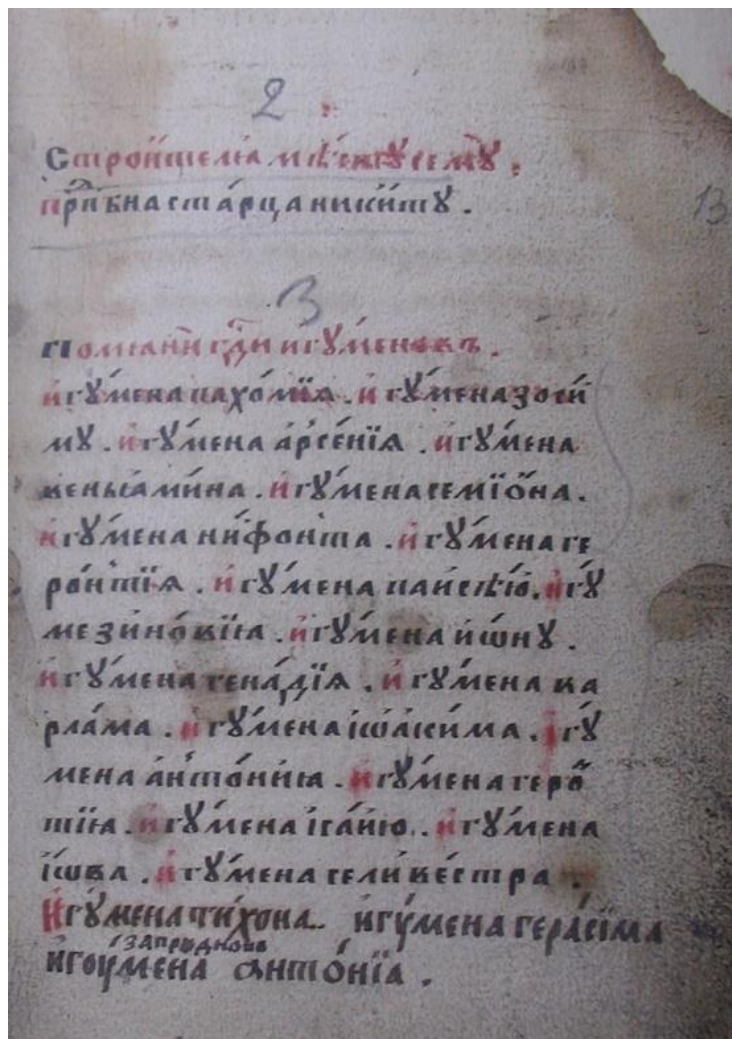 2
Строи́телѧ мѣ́стꙋ семꙋ̀ .
прпⷣбна ста́рца ники́тꙋ .
13
3
Помѧни гдⷭ҇и игꙋ́меновъ .
и҆гꙋ́мена пахо́мїѧ . и҆гꙋ́мена зоси́
мꙋ . и҆гꙋ́мена а҆рсе́нїѧ . и҆гꙋ́мена
веньѧми́на . и҆гꙋ́мена семїо́на .
и҆гꙋ́мена ни́фонта . и҆гꙋ́мена ге
ро́нтїѧ . и҆гꙋ́мена паисѣ́ю . и҆гꙋ́
ме зино́вїѧ . и҆гꙋ́мена и҆ѡ́нꙋ .
и҆гꙋ́мена гена́дїѧ . и҆гꙋ́мена ва
рла́ма . и҆гꙋ́мена і҆ѡаки́ма . и҆гꙋ́
мена а҆нто́ниѧ . и҆гꙋ́мена геро́ⷩ
тїѧ . и҆гꙋ́мена і҆са́ию . и҆гꙋ́мена
і҆ѡ́ва . и҆гꙋ́мена селиве́стра .
И҆гꙋ́мена ти́хона . и҆гꙋ́мена гера́сїма
запрꙋднова
игоу́мена анто́нїа .